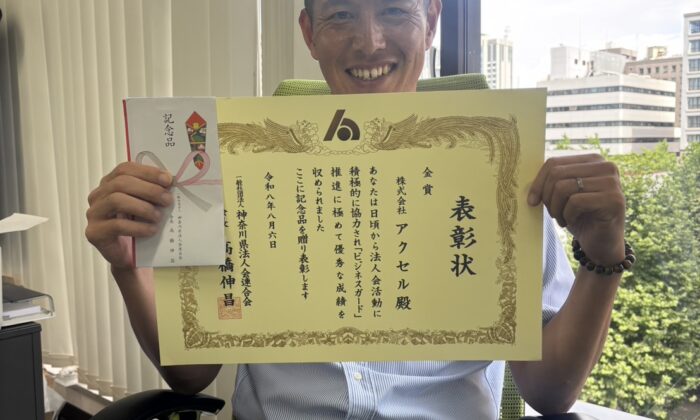 表彰状
金賞
株式会社 アクセル殿
あなたは日頃から法人会活動に
積極的に協力され「ビジネスガード」
推進に極めて優秀な成績を
収められました
ここに記念品を贈り表彰します
令和八年八月六日
一般社団法人 神奈川県法人会連合会
髙橋伸昌
記念品